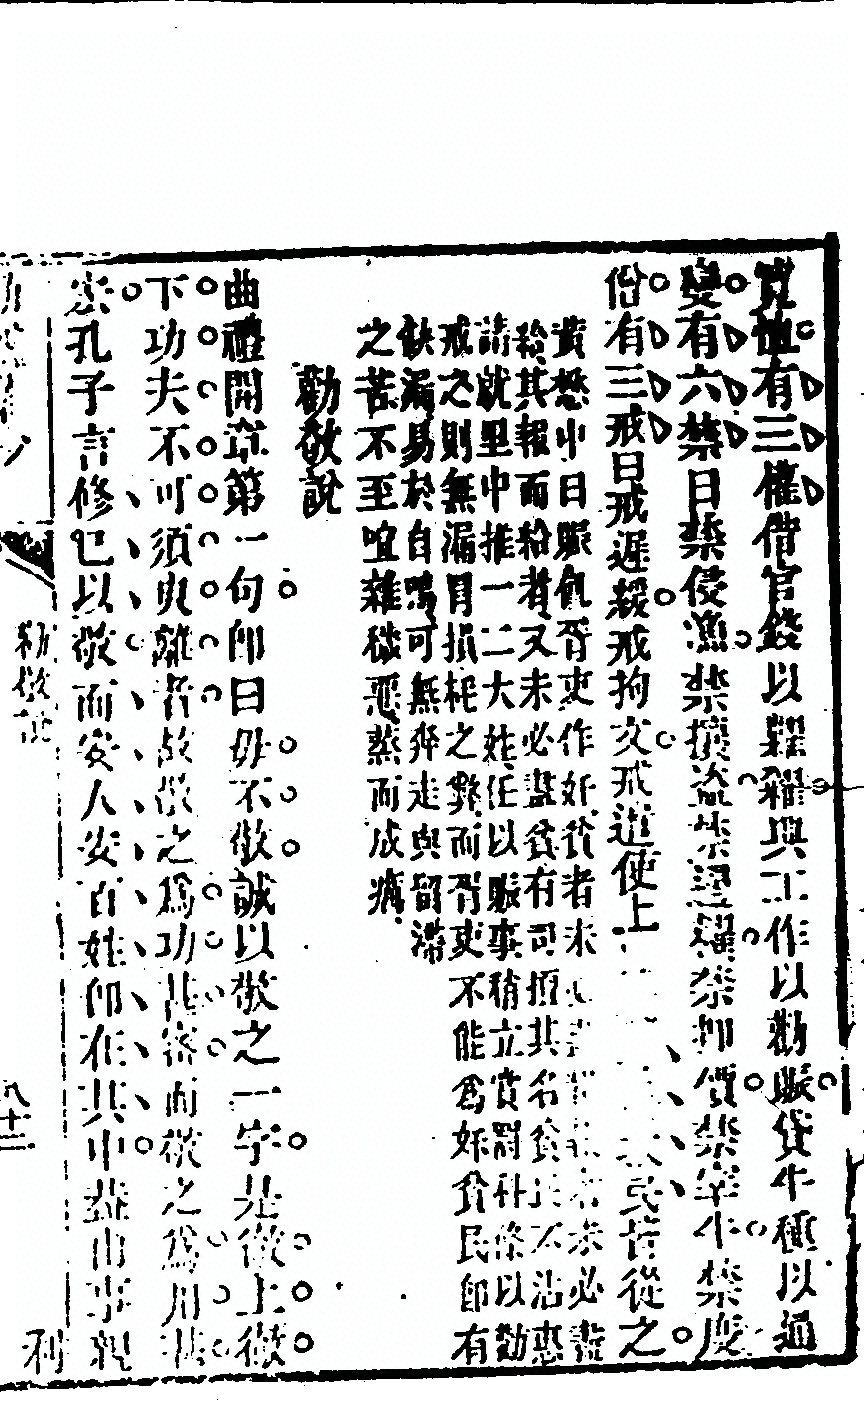 寬恤有三權借官錢以糶糴興工作以勸賑貸牛種以通
變有六禁曰禁侵漁禁攘盜禁遏糴禁抑價禁宰牛禁度
僧有三戒曰戒遲緩戒拘文戒遣使上民皆從之
黃懋中曰賑飢胥吏作奸貧者未者未必盡
給其報而給者又未必盡貧有司損其名貧民不沾惠
請就里中推一二大姓任以賑事稍立賞罰科條以勸
戒之則無漏冒損耗之弊而胥吏不能為奸貧民即有
缺漏易於自鳴可無奔走與留滯
之苦不至喧雜穢惡蒸而成癘
勸敬說
曲禮開章第一句即曰毋不敬誠以敬之一字是徹上徹
下功夫不可須臾離者故敬之為功甚密而敬之為用甚
宏孔子言修己以敬而安人安百姓即在其中蓋由事親
勸敬說
八十二
利